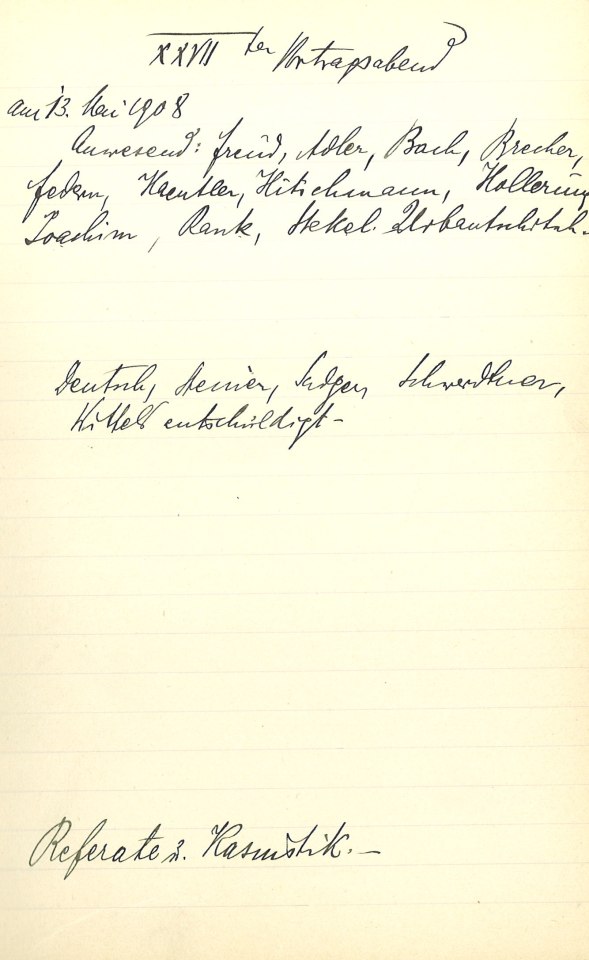 XXVII ter Vortragsabend
am 13. Mai 1908
Anwesend: Freud, Adler, Bach, Brecher,
Federn, Haeutler, Hitschmann, Hollerung
Joachim, Rank, Stekel. Urbantschitsch.
Deutsch, Steiner, Sadger, Schwerdtner,
Wittels entschuldigt –
Referate u. Kasuistik. –